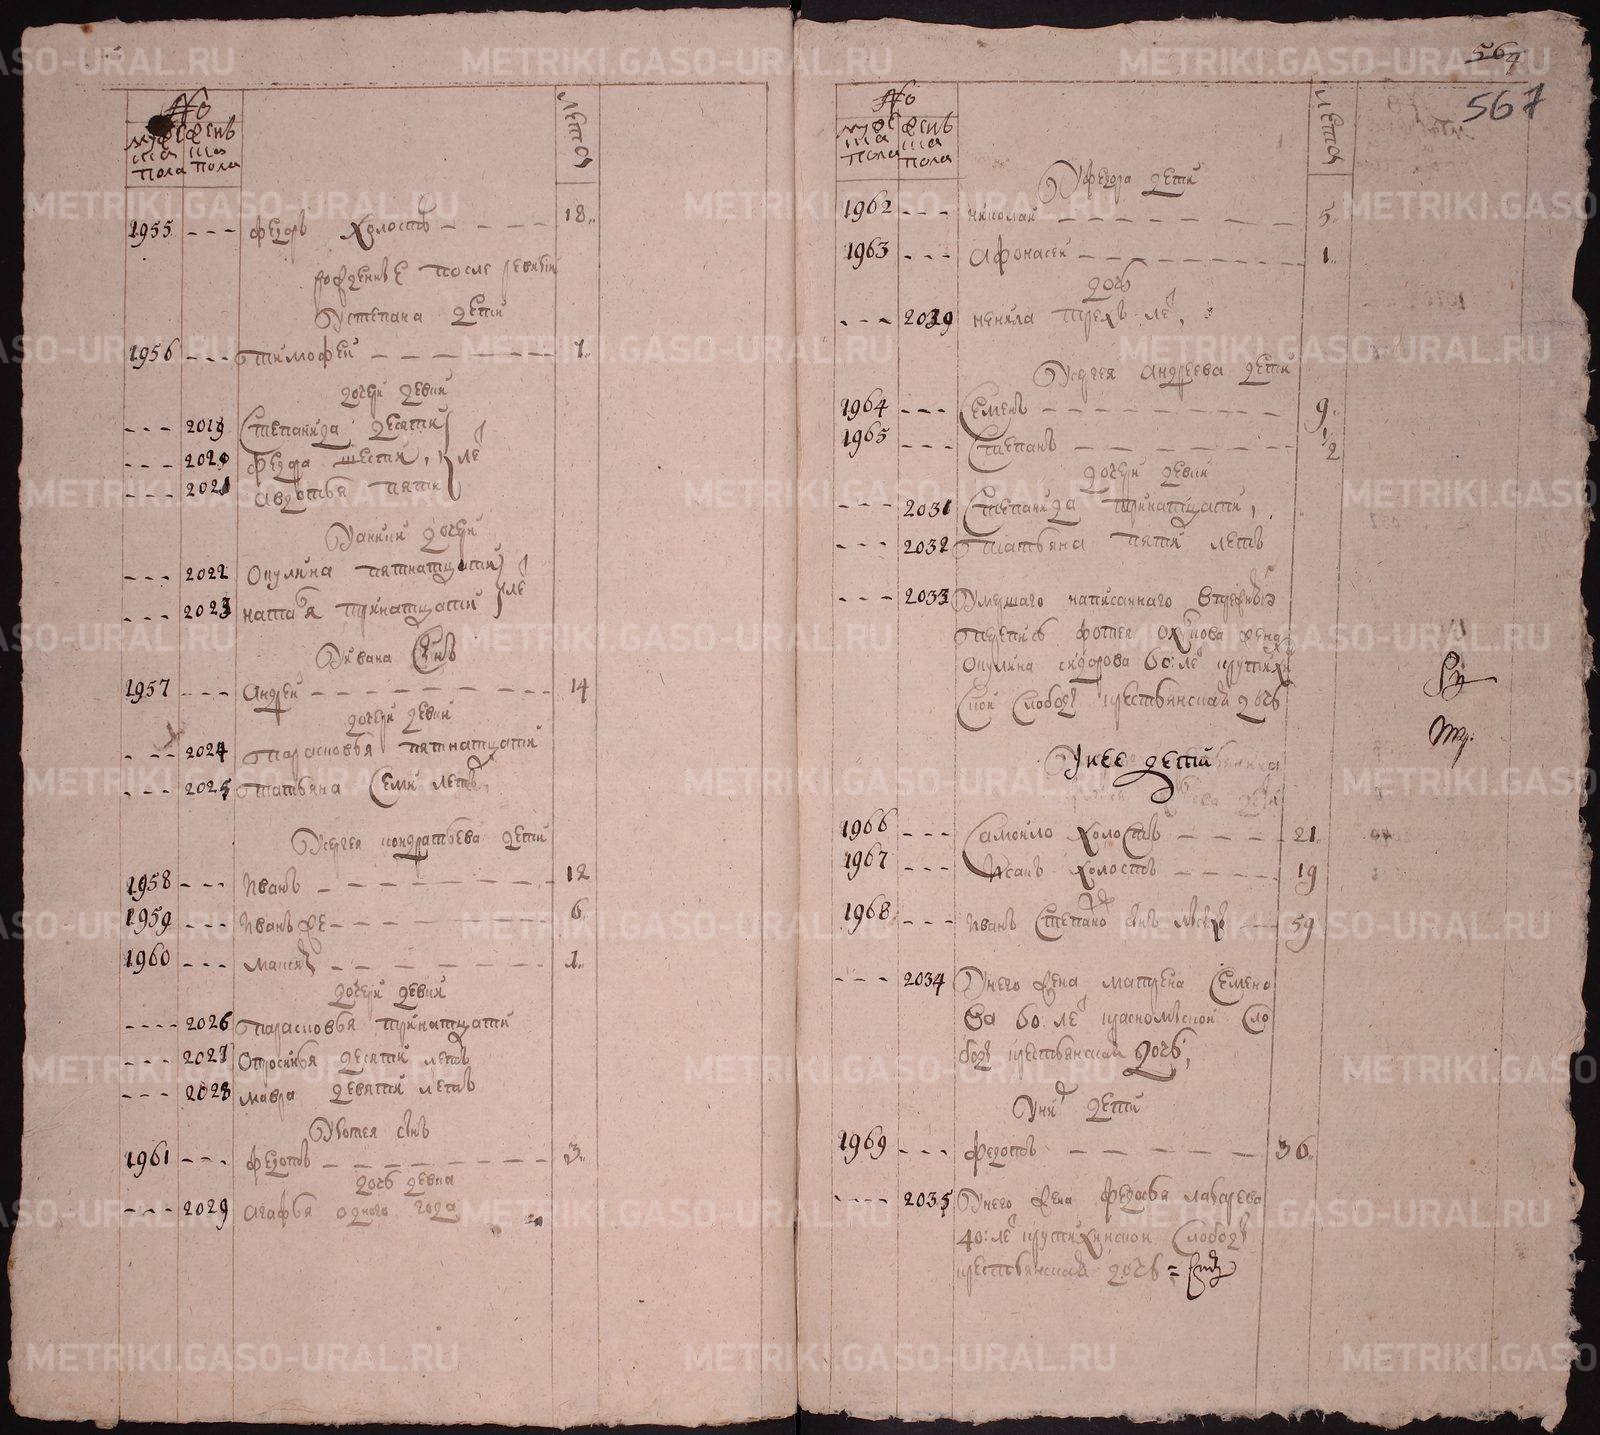 №
мужеска пола
женска пола
лета
1955 --- федоръ холостъ ---- 18
рожденные после ревизии
Устепана дети
1956 --- тимофеи ------- 1
дочери девки
--- 2019 Степанида десяти
--- 2020 федора шести, лѣ
--- 2021 авдотья пяти
дочери
--- 2022 Опулина пятнатцати
--- 2023 наталья тринатцати лѣ
Уивана Снъ
1957 --- андреи -------- 14
дочери девки
--- 2024 парасковья пятнатцати
--- 2025 татьяна Семи летъ,
Усергея кондратьева дети
1958 --- иванъ -------- 12
1959 --- иванъ же ------ 6
1960 --- максим ------ 1
дочери девки
---- 2026 парасковья тринатцати
--- 2027 Опросинья десяти летъ
--- 2028 мавра девяти летъ
снъ
1961 --- федотъ ------- 3
дочь девка
--- 2029 агафья одного года
564
567
№
мужеска пола
женска пола
лета
Уфедора дети
1962 --- николаи ------- 5
1963 --- афонасеи ------- 1
дочь
--- ненила трехъ лѣ,
Усергея андреева дети
1964 --- Семенъ ------- 9
1965 --- Степанъ ------- 1/2
дочери девки
--- 2031 Степанида тринатцати,
--- 2032 татьяна пяти летъ
--- 2033 Умершаго написанного
перепись фотея жена
Опулина сидорова 60: лѣ
Слободы крестьянская дочь
Унее дети
1966 --- Самоило холостъ ---- 21
1967 --- холостъ ---- 19
1968 --- иванъ Степано снъ -- 59
--- 2034 Унего жена матрена Семено
ва 60: лѣ красномыской Сло
боды крестьянская дочь,
Уних дети
1969 --- федотъ ------ 36
---- 2035 Унего жена федосья лазарева
40: лѣ Слободы
крестьянская дочь =